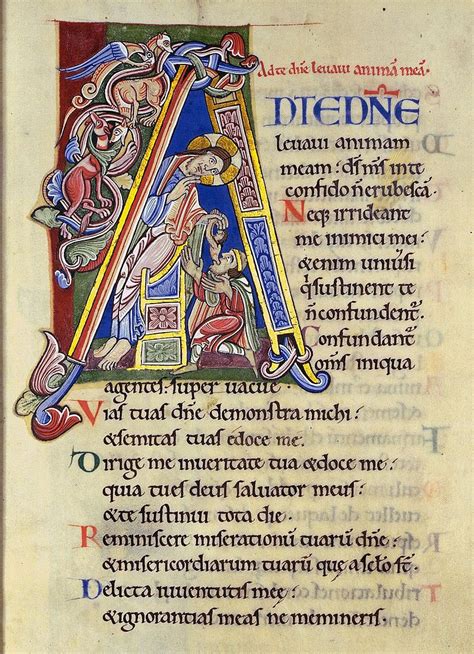 Ad te dn̄e leuaui animā meā.
ADTEDN̄E
leuaui animam
meam: ds̄ ms̄ inte
confido n̄ erubescā.
Neq; irrideant
me inimici mei:
&enim uniusi
q̄ sustinent te
n̄ confundent̄.
Confundant̄
om̄s iniqua
agentes: super uacue.
Vias tuas dn̄e demonstra michi:
&semitas tuas edoce me.
Dirige me inueritate tua &doce me:
quia tues deus saluator meus:
&te sustinui tota die.
Reminiscere miserationū tuarū dn̄e:
&misericordiarum tuarū que aselo st̄.
Delicta iuuentutis meę:
&ignorantias meas ne memineris.